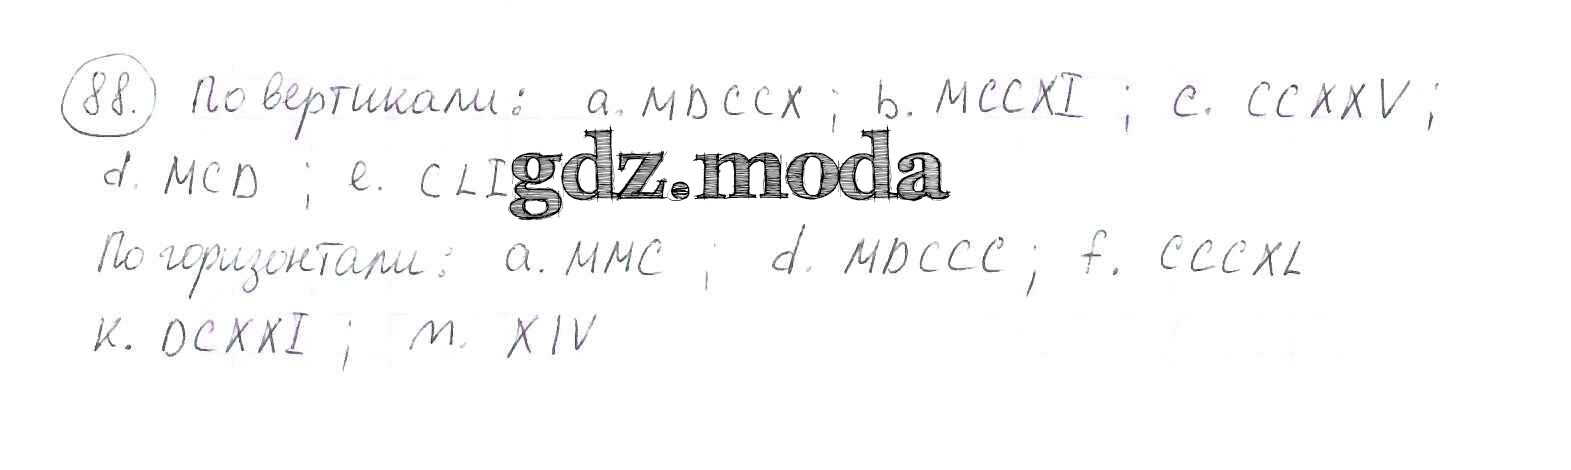 88. По вертикали: a. MDCCX; b. MCCXI; c. CCXXV;
d. MCD; e. CLI
gdz.moda
По горизонтали: a. MMC; d. MDCCC; f. CCCXL
к. DCXXI; m. XIV